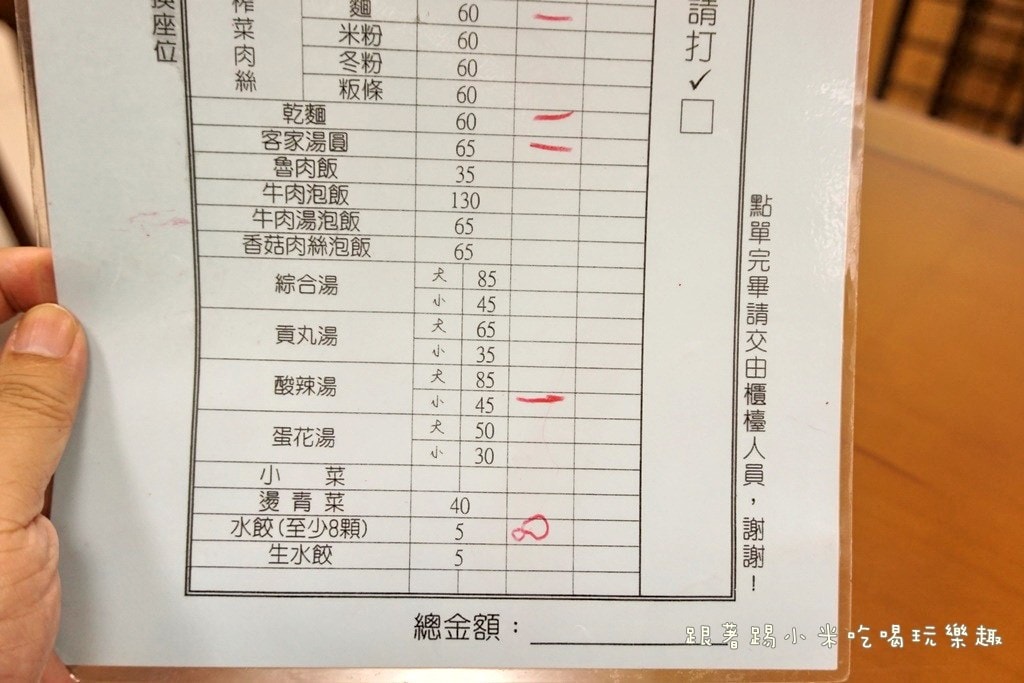 換座位
榨菜肉絲
麵 60
米粉 60
冬粉 60
粄條 60
乾麵 60
客家湯圓 65
魯肉飯 35
牛肉泡飯 130
牛肉湯泡飯 65
香菇肉絲泡飯 65
綜合湯 大 85
小 45
貢丸湯 大 65
小 35
酸辣湯 大 85
小 45
蛋花湯 大 50
小 30
小 菜
燙青菜 40
水餃(至少8顆) 5 8
生水餃 5
總金額：
請打✓□
點單完畢請交由櫃檯人員，謝謝！
跟著踢小米吃喝玩樂趣